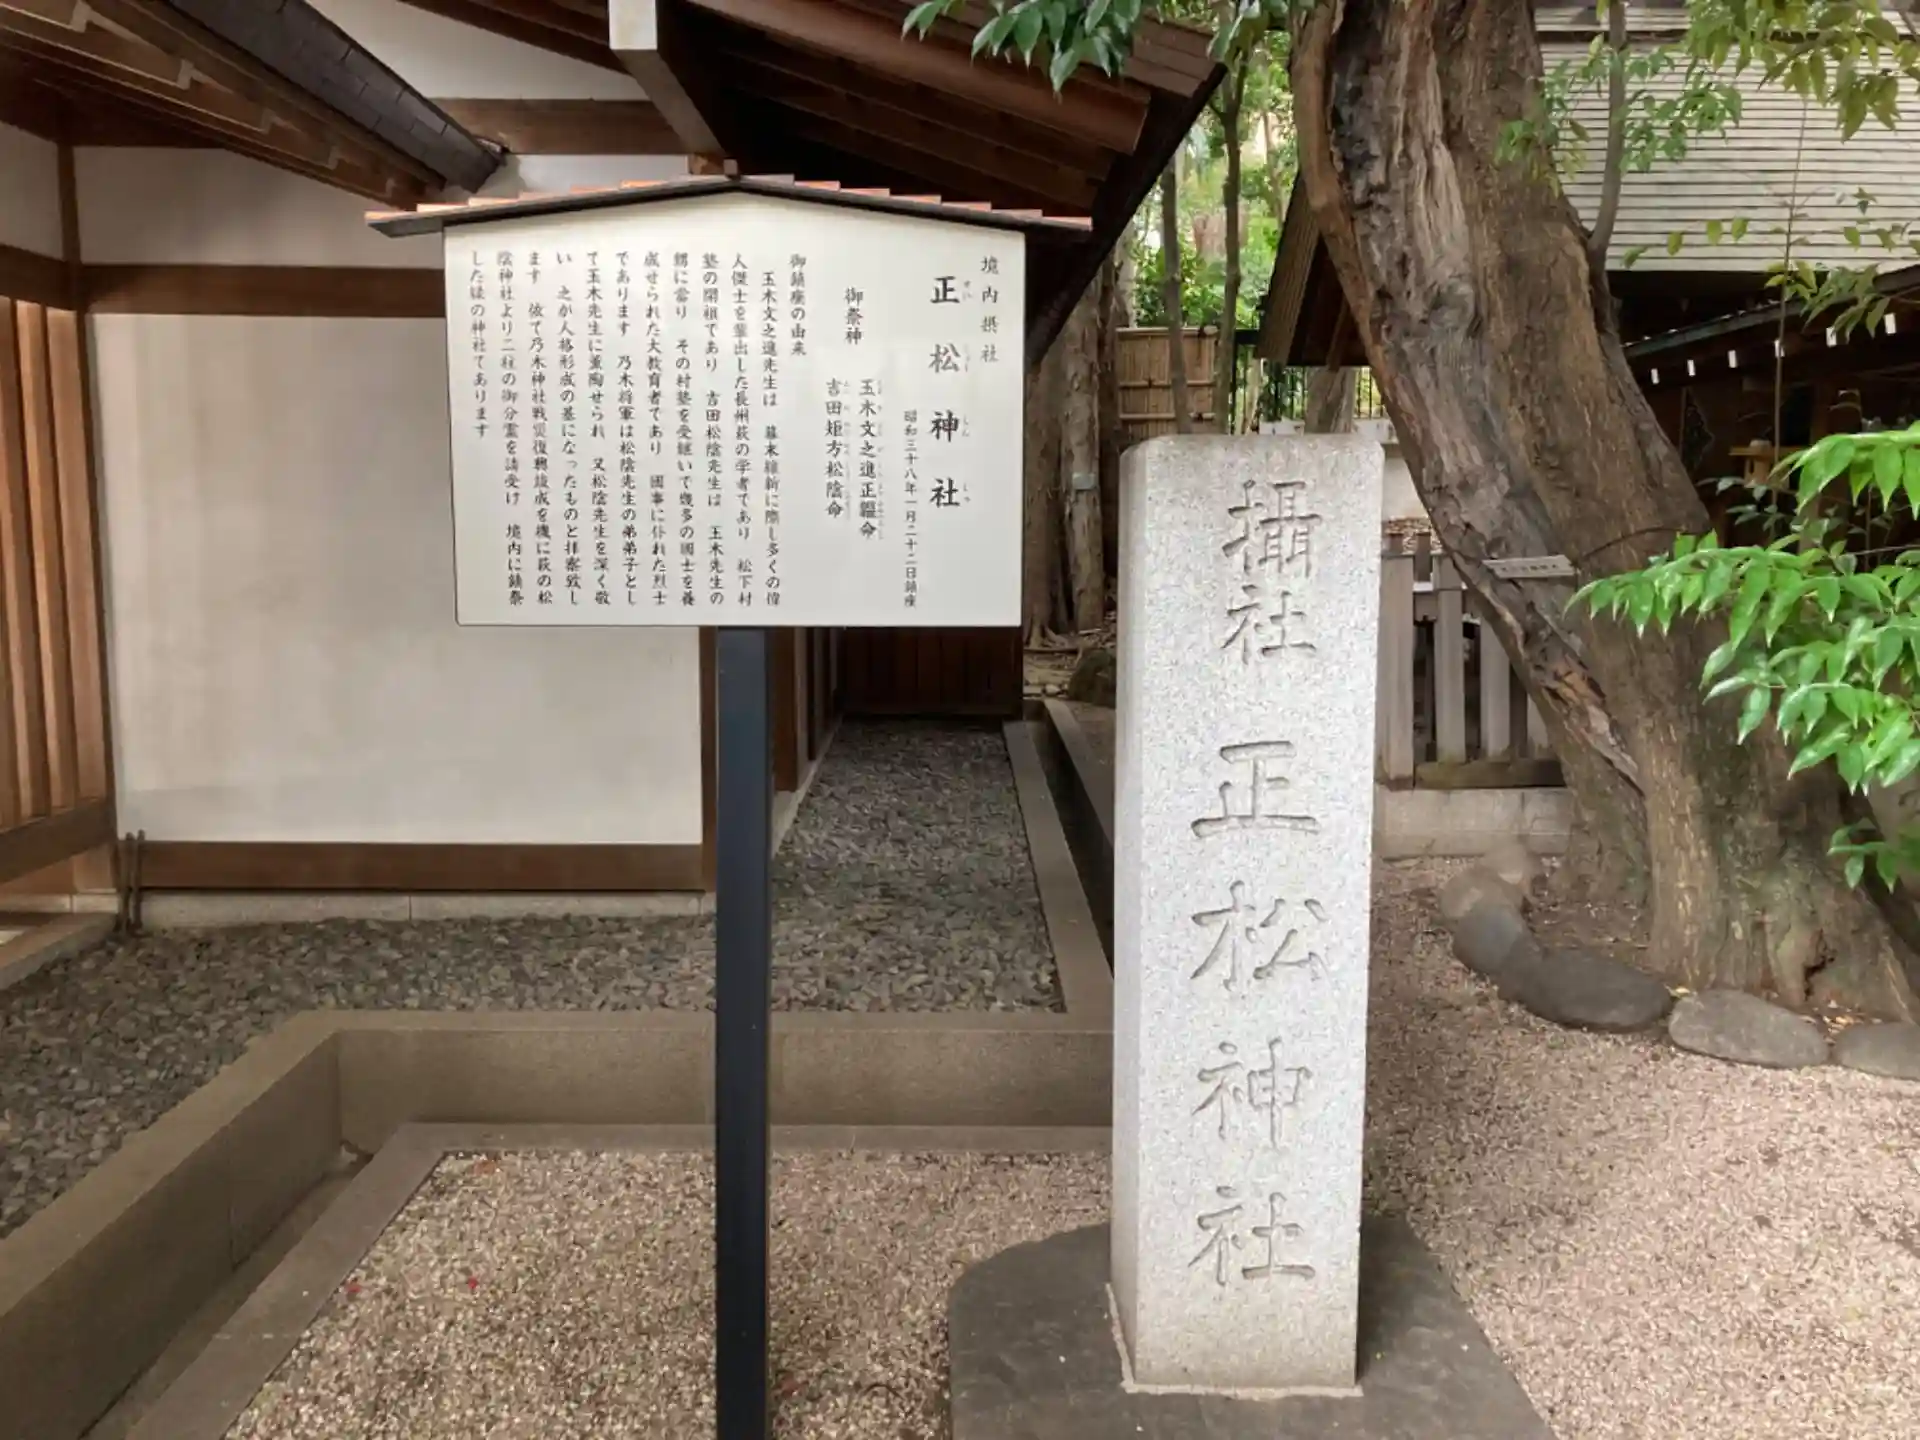 境内摂社
正松神社
せい しょう じん しゃ
昭和三十八年一月二十二日鎮座
御祭神
玉木文之進正韞命
吉田矩方松陰命
御鎮座の由来
玉木文之進先生は 幕末維新に際し多くの偉
人傑士を輩出した長州萩の学者であり 松下村
塾の開祖であり 吉田松陰先生は 玉木先生の
甥に當り その村塾を受継いで幾多の國士を養
成せられた大教育者であり 國事に仆れた烈士
であります 乃木将軍は松陰先生の弟弟子とし
て玉木先生に薫陶せられ 又松陰先生を深く敬
い 之が人格形成の基になったものと拝察致し
ます 依て乃木神社戦災復興竣成を機に萩の松
陰神社より二柱の御分霊を請受け 境内に鎮祭
した縁の神社であります
攝社 正松神社